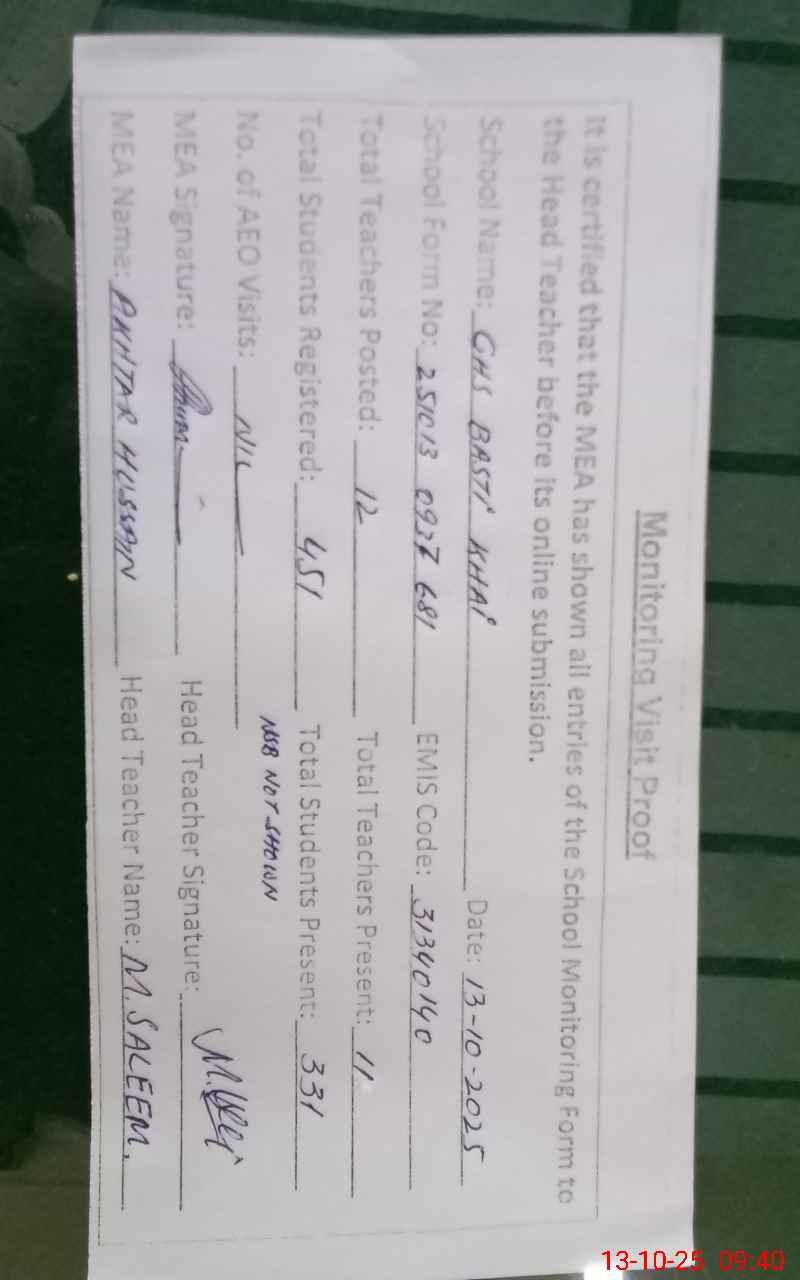 Monitoring Visit Proof
It is certified that the MEA has shown all entries of the School Monitoring Form to
the Head Teacher before its online submission.
School Name: GHS BASTI KHAI Date: 13-10-2025
School Form No: 251013 0937 681 EMIS Code: 31340140
Total Teachers Posted: 12 Total Teachers Present: 11
Total Students Registered: 451 Total Students Present: 331
No. of AEO Visits: NIL NSB NOT SHOWN
MEA Signature: Head Teacher Signature:
MEA Name: AKHTAR HUSSAIN Head Teacher Name: M. SALEEM.
13-10-25 09:40